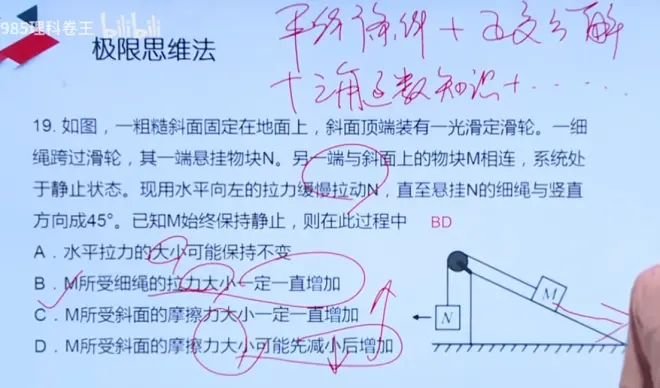 985理科卷王 bilibili
极限思维法
平衡条件 + 正交分解
+ 三角函数知识 + ......
19. 如图，一粗糙斜面固定在地面上，斜面顶端装有一光滑定滑轮。一细
绳跨过滑轮，其一端悬挂物块N。另一端与斜面上的物块M相连，系统处
于静止状态。现用水平向左的拉力缓慢拉动N，直至悬挂N的细绳与竖直
方向成45°。已知M始终保持静止，则在此过程中 BD
A．水平拉力的大小可能保持不变
B．M所受细绳的拉力大小一定一直增加
C．M所受斜面的摩擦力大小一定一直增加
D．M所受斜面的摩擦力大小可能先减小后增加
M
N